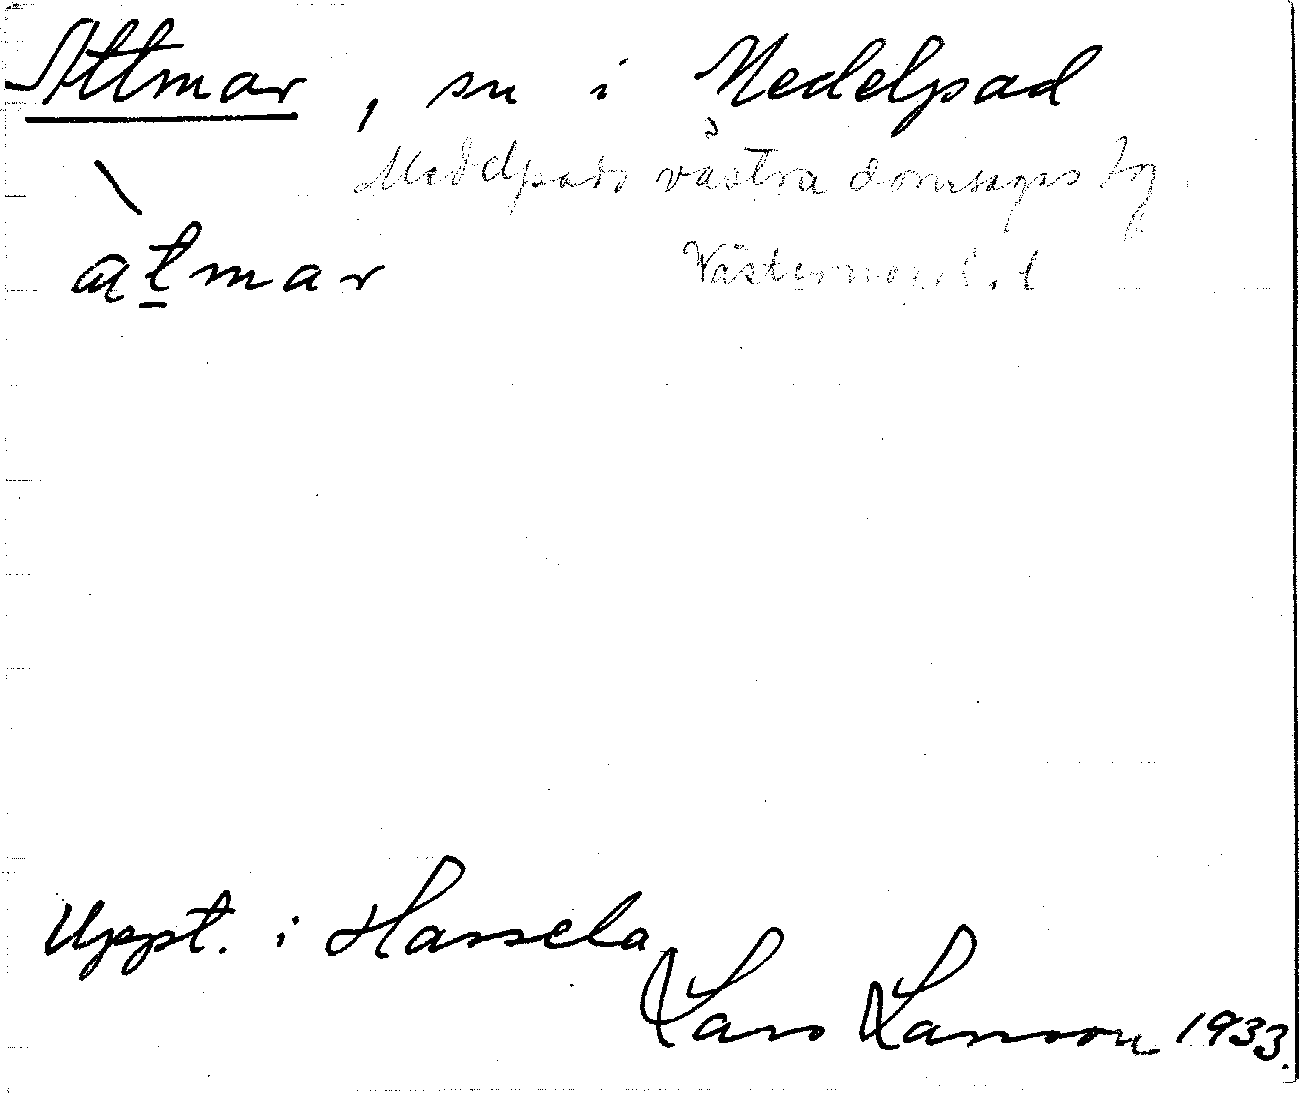 Attmar, sn i Medelpad
Medelpads västra domsagas
\
atmar
Uppt. i Hassela
Lars Larsson 1933.